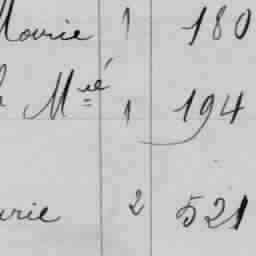 Marie 1 180
Mié 1 194
rie 2 521